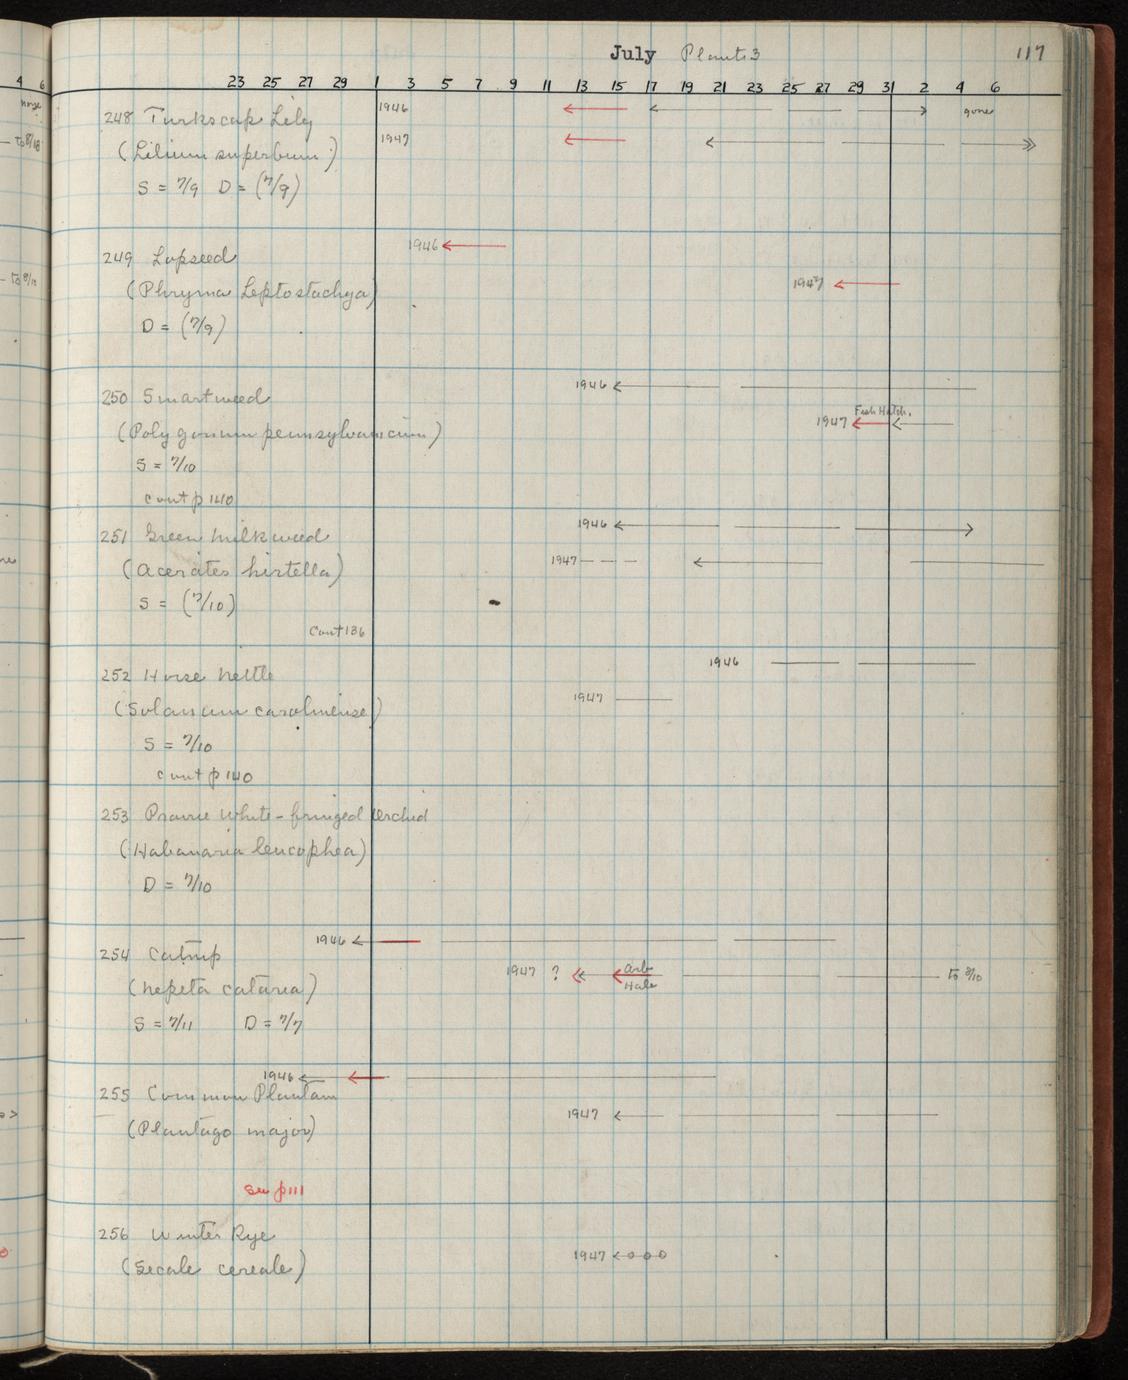 July Plants 3 117
4 6
23 25 27 29 1 3 5 7 9 11 13 15 17 19 21 23 25 27 29 31 2 4 6
1946 gone
248 Turkscap Lily
1947
(Lilium superbum)
to 8/18
S = 7/9 D = (7/9)
1946
249 Lopseed
1947
(Phryma Leptostachya)
D = (7/9)
1946
250 Smartweed
Fish Hatch.
1947
(Polygonum pennsylvanicum)
S = 7/10
cont p 140
1946
251 Green milkweed
1947
(Acerates hirtella)
S = (7/10)
Cont 136
1946
252 Horse nettle
1947
(Solanum carolinense)
S = 7/10
cont p 140
253 Prairie White-fringed Orchid
(Habanaria leucophea)
D = 7/10
1946
254 Catnip
1947 ? Arb
Hale
(nepeta cataria)
S = 7/11 D = 7/7
1946
255 Common Plantain
1947
(Plantago major)
See p 111
256 Winter Rye
1947
(Secale cereale)